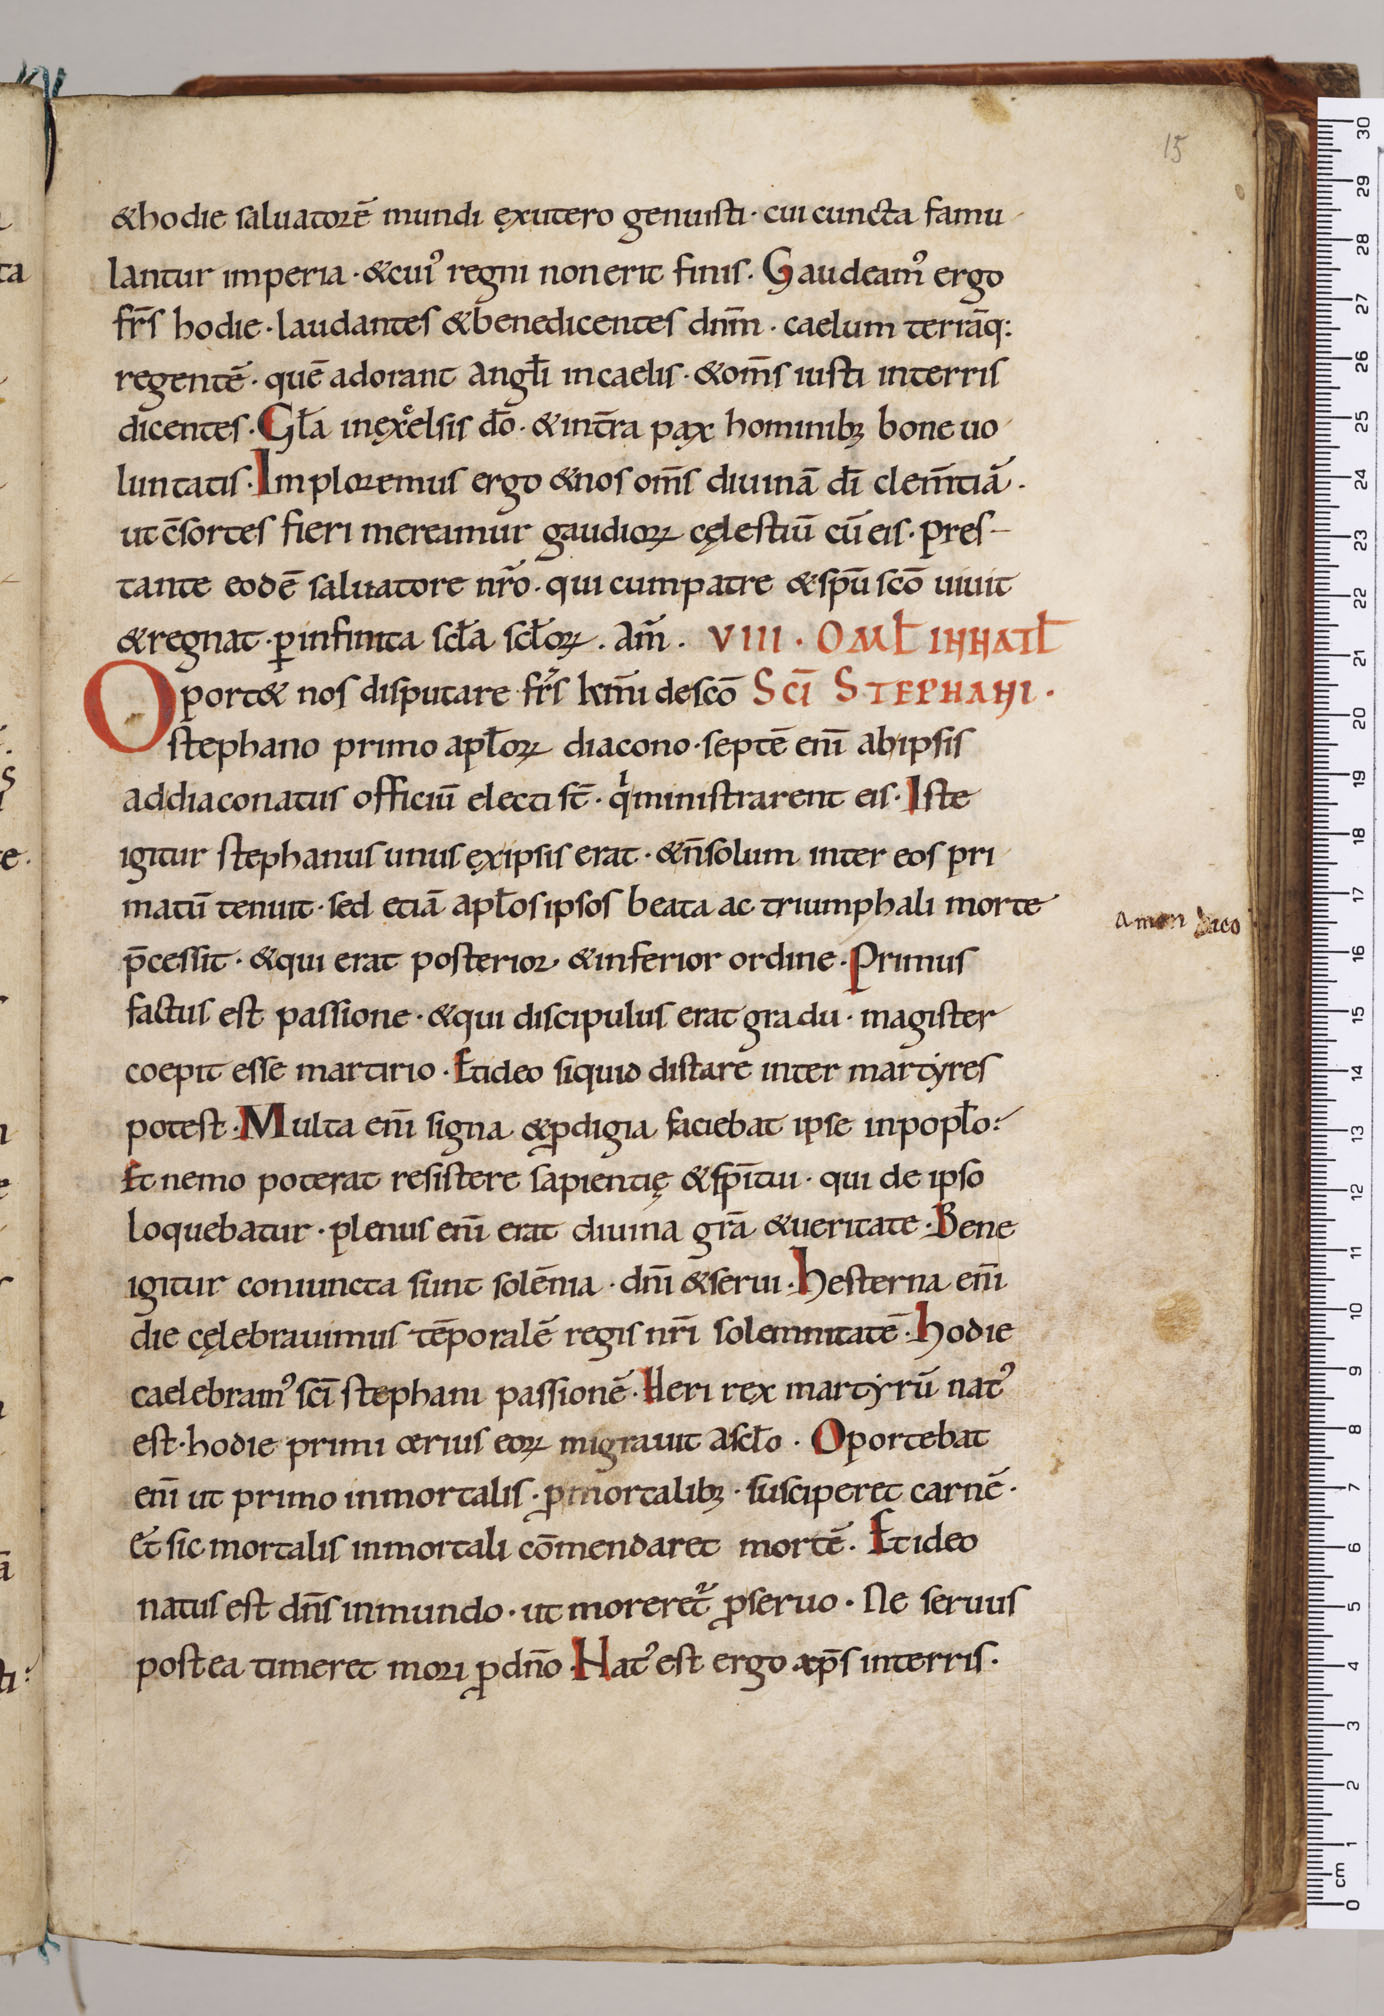 15
&hodie saluatorē mundi ęxutero genuisti · cui cuncta famu
lantur imperia · &cui᾽ regni nonerit finis. Gaudeam᾽ ergo
fr̄s hodie · laudantes &benedicentes dnm̄ · caelum terrāq:
regentē · quē adorant angłi incaelis · &om̄s iusti interris
dicentes · Gła inęxcelsis dō · &int̄ra pax hominibꝫ bone uo
luntatis · Imploremus ergo &nos om̄s diuinā dī clem̄tiā ·
ut c̄sortes fieri mereamur gaudioꝝ cęlestiū cū eis · pres-
tante eodē saluatore nr̄o · qui cumpatre &spū scō uiuit
®nat · ꝑinfinita scła scłoꝝ . am̄ . VIII · OMŁ INNATŁ
Oport& nos disputare fr̄s km̄i descō SCĪ STEPHANI ·
stephano primo apłoꝝ diacono · septē enī abipsis
addiaconatus officiū electi st̄ · qͥministrarent eis · Iste
igitur stephanus unus ęxipsis erat · &n̄solum inter eos pri
matū tenuit · sed etiā apłos ipsos beata ac triumphali morte
p̄cessit · &qui erat posterior &inferior ordine · Primus
factus est passione · &qui discipulus erat gradu · magister
coepit esse martirio · Etideo siquid distare inter martyres
potest · Multa enī signa &ꝓdigia faciebat ipse inpopło:
Et nemo poterat resistere sapientię &sp̄itui · qui de ipso
loquebatur · plenus enī erat diuina grā &ueritate · Bene
igitur coniuncta sunt solēnia · dnī &serui · hesterna enī
die cęlebrauimus tēporalē regis nr̄i solemnitatē · hodie
caelebram᾽ scī stephani passionē · Heri rex martyrū nat᾽
est · hodie primicerius eoꝝ migrauit ascło · Oportebat
enī ut primo inmortalis · ꝓmortalibꝫ · susciperet carnē ·
Et sic mortalis inmortali cōmendaret mortē. Etideo
natus est dn̄s inmundo · ut moreret᷑ ꝓseruo · Ne seruus
postea timeret mori ꝓdn̄o · Nat᾽ est ergo xp̄s interris ·
amen dico